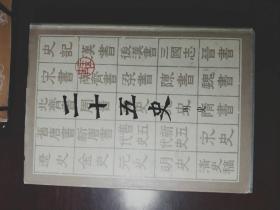 史記 漢書 後漢書 三國志 晉書
宋書 南齊書 梁書 陳書 魏書
二十五史
北齊書 隋書
舊唐書 新唐書 舊五代史 新五代史 宋史
遼史 金史 元史 明史 清史稿